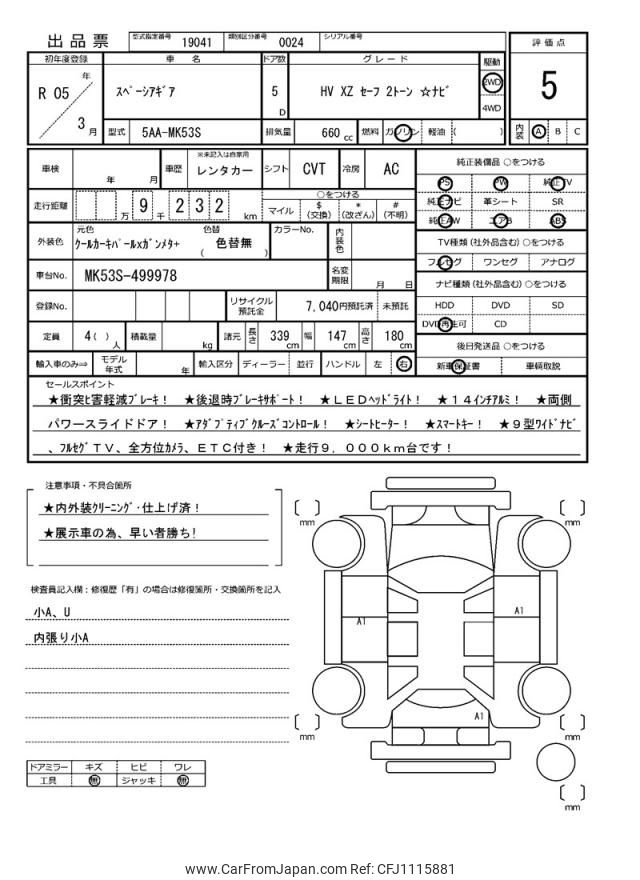 出品票
型式指定番号 19041 類別区分番号 0024 シリアル番号
初年度登録 車名 ドア数 グレード 駆動 評価点
R 05 年 3 月
スペーシアギア 5 D HV XZ セーフ 2トーン ☆ナビ 2WD 4WD 5
型式 5AA-MK53S 排気量 660 cc 燃料 ガソリン 軽油 ( ) 内装 A B C
車検 年 月 車歴 ※未記入は自家用 レンタカー シフト CVT 冷房 AC
走行距離 万 9 千 2 3 2 km
○をつける
マイル $ (交換) * (改ざん) # (不明)
外装色 元色 クールカーキパールxガンメタ+ 色替 ( 色替無 ) カラーNo. 内装色
車台No. MK53S-499978 名変期限 月 日
登録No. リサイクル預託金 7,040円預託済 未預託
定員 4( ) 人 積載量 kg 諸元 長さ 339 cm 幅 147 cm 高さ 180 cm
輸入車のみ⇒ モデル年式 年 輸入区分 ディーラー 並行 ハンドル 左 右
純正装備品 ○をつける
PS PW 純正TV
純正ナビ 革シート SR
純正AW エアB ABS
TV種類(社外品含む)○をつける
フルセグ ワンセグ アナログ
ナビ種類(社外品含む)○をつける
HDD DVD SD
DVD再生可 CD
後日発送品 ○をつける
新車保証書 車輌取説
セールスポイント
★衝突ヒ害軽減ブレーキ! ★後退時ブレーキサポート! ★LEDヘッドライト! ★14インチアルミ! ★両側
パワースライドドア! ★アダプティブクルーズコントロール! ★シートヒーター! ★スマートキー! ★9型ワイドナビ
、フルセグTV、全方位カメラ、ETC付き! ★走行9,000km台です!
注意事項・不具合箇所
★内外装クリーニング・仕上げ済!
★展示車の為、早い者勝ち!
検査員記入欄:修復歴「有」の場合は修復箇所・交換箇所を記入
小A、U
内張り小A
ドアミラー キズ ヒビ ワレ
工具 無 ジャッキ 無
mm
mm
A1
A1
A1
mm
mm
mm
www.CarFromJapan.com Ref: CFJ1115881